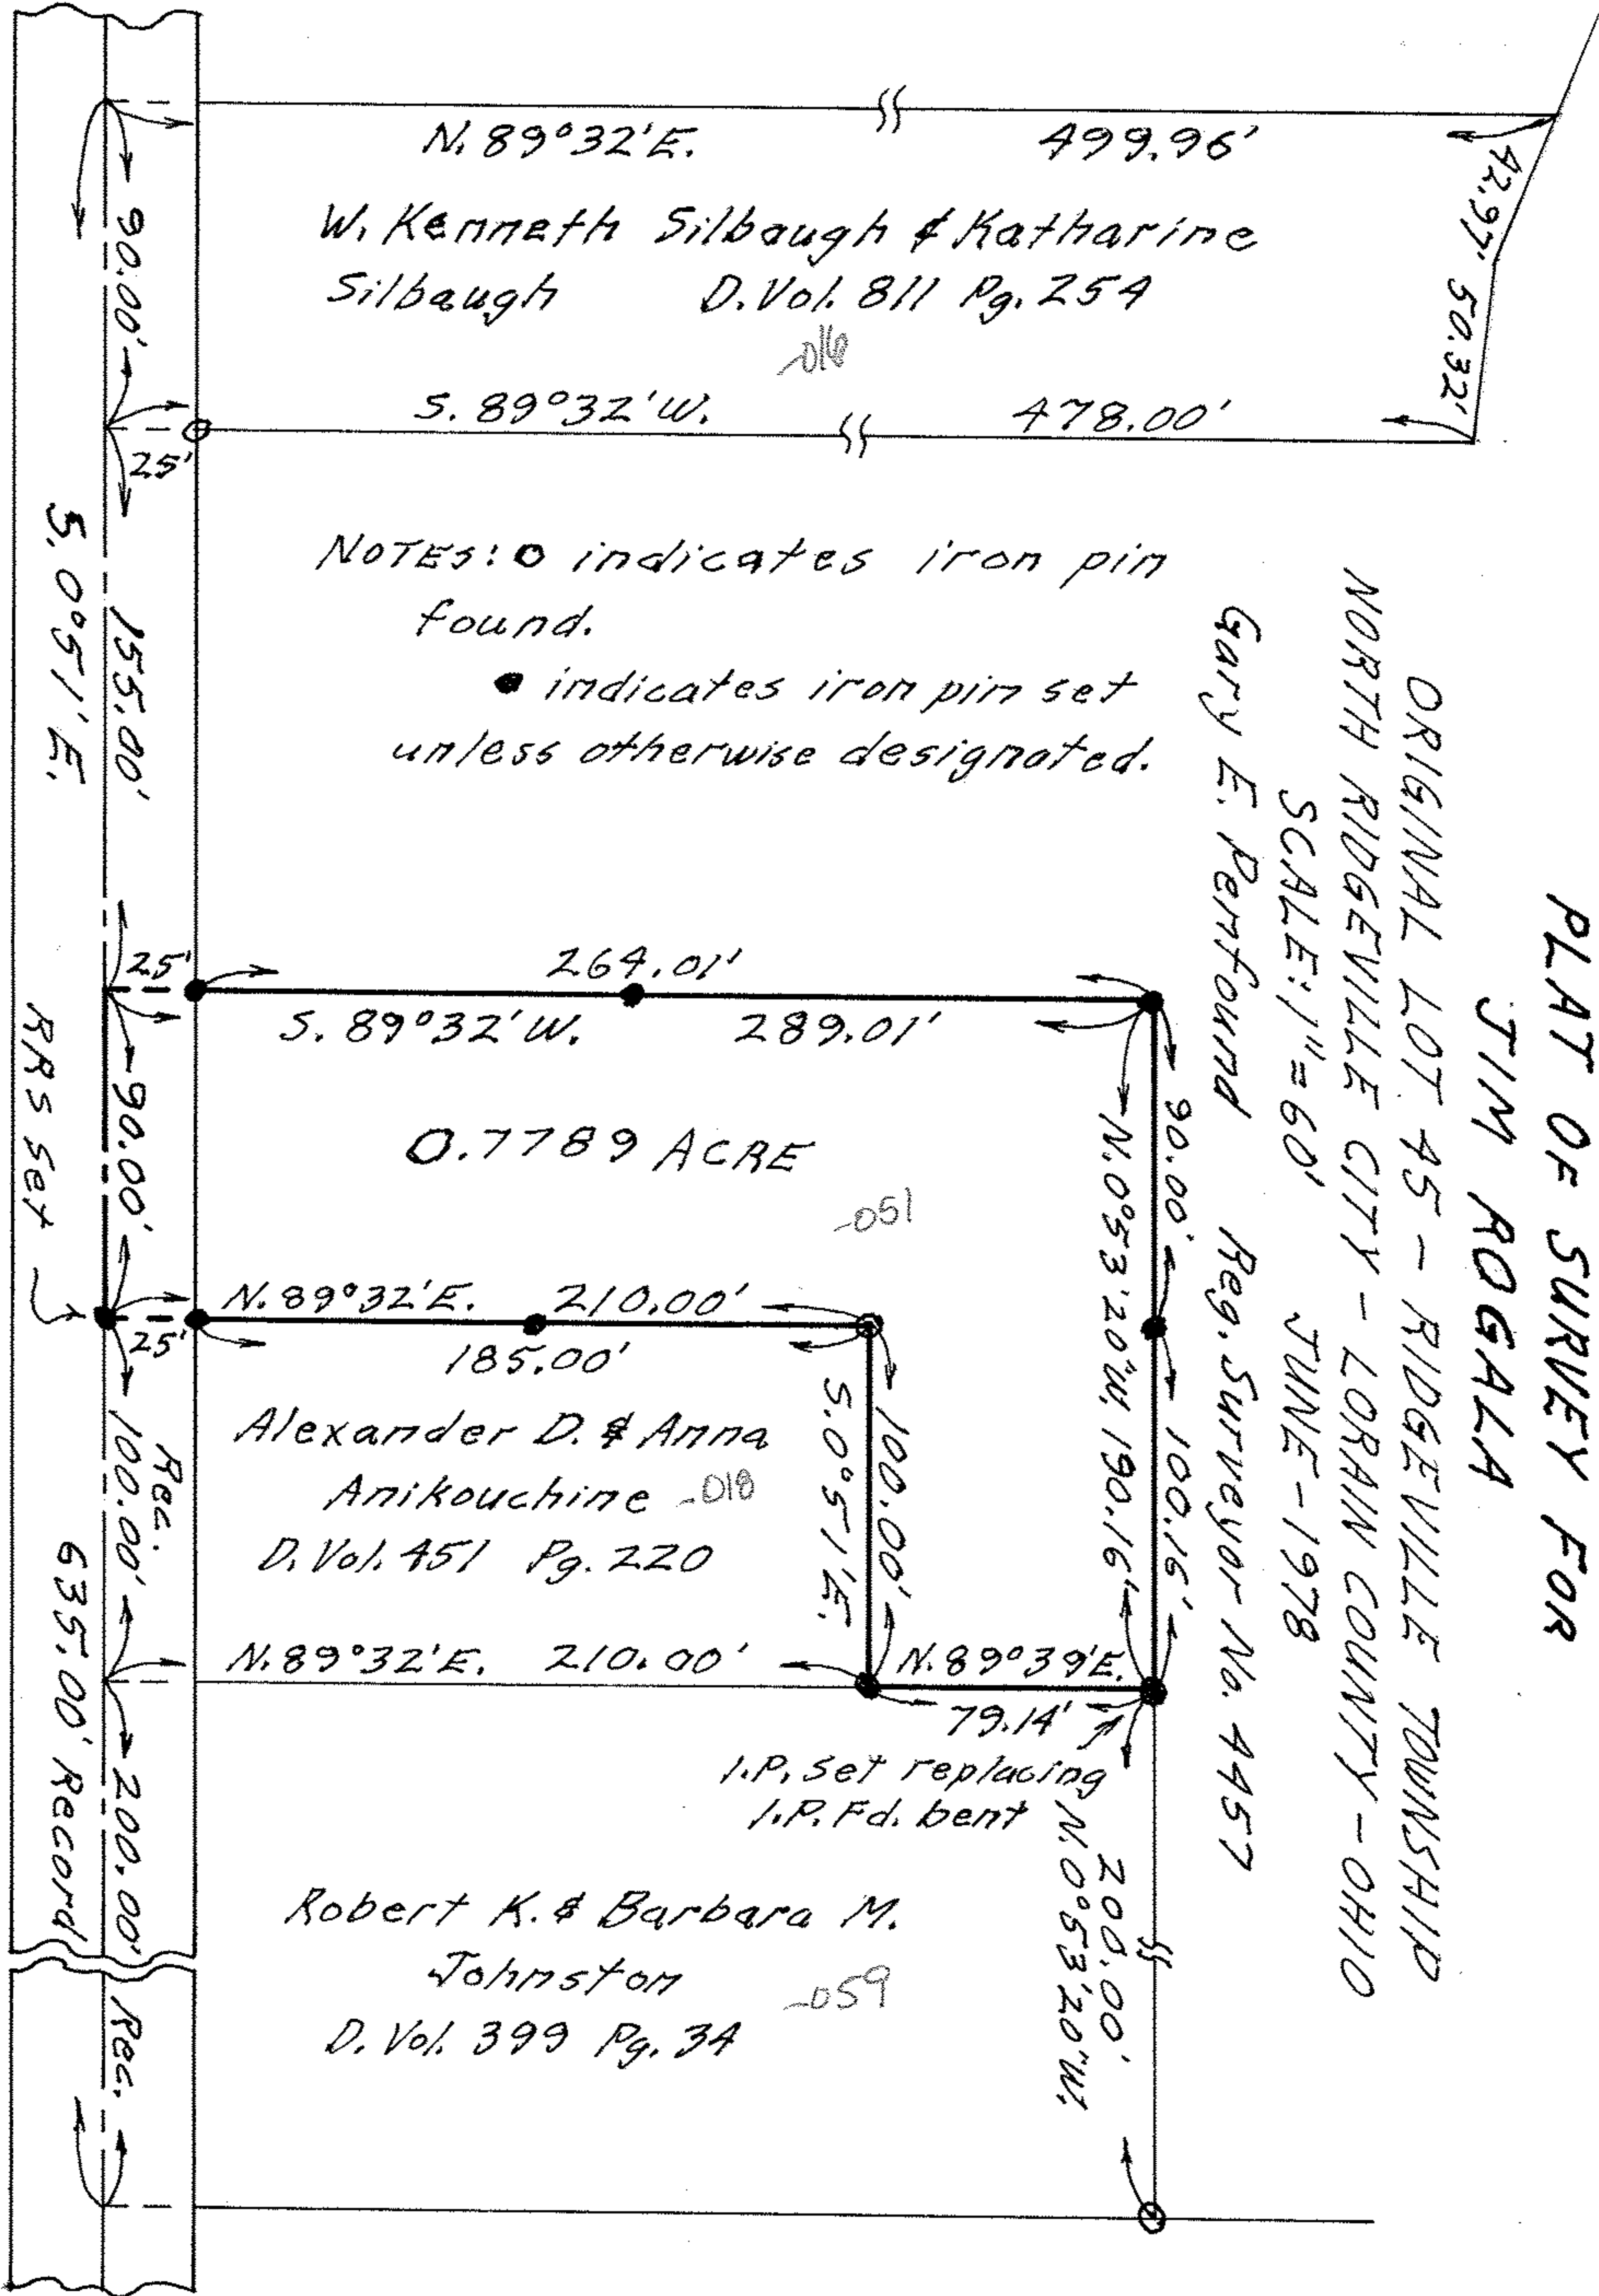 PLAT OF SURVEY FOR
JIM ROGALA
ORIGINAL LOT 45 - RIDGEVILLE TOWNSHIP
NORTH RIDGEVILLE CITY - LORAIN COUNTY - OHIO
SCALE: 1"=60' JUNE - 1978
Gary E. Penfound Reg. Surveyor No. 4457
N. 89°32'E. 499.96'
42.97'
50.32'
W. Kenneth Silbaugh & Katharine
Silbaugh D. Vol. 811 Pg. 254
-016
S. 89°32'W. 478.00'
90.00'
25'
NOTES: O indicates iron pin
found.
● indicates iron pin set
unless otherwise designated.
S. 0°51'E.
155.00'
25'
264.01'
S. 89°32'W. 289.01'
90.00'
0.7789 ACRE
-051
90.00'
N. 0°53'20"W. 190.16'
100.16'
RRS Set
25'
N. 89°32'E. 210.00'
185.00'
Alexander D. & Anna
Anikouchine -018
D. Vol. 451 Pg. 220
S. 0°51'E.
100.00'
Rec.
100.00'
N. 89°32'E. 210.00'
N. 89°39'E.
79.14'
I.P. set replacing
I.P. Fd. bent
635.00' Record
200.00'
Rec.
Robert K. & Barbara M.
Johnston
-059
D. Vol. 399 Pg. 34
200.00'
N. 0°53'20"W.